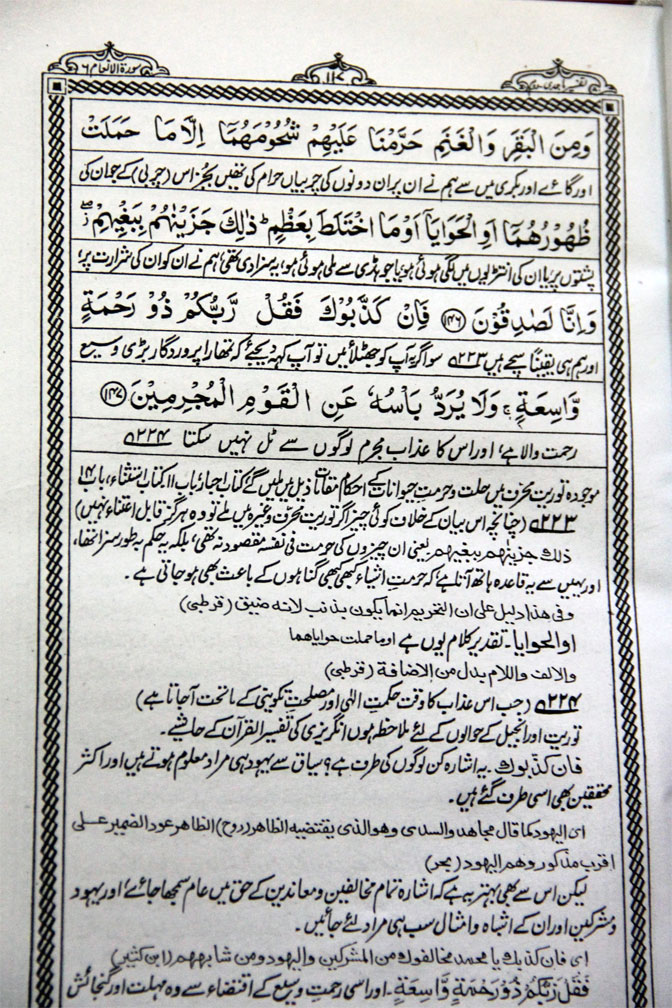 سورة الانعام ٦
۱۱۷
تفسیر ماجدی
وَمِنَ الْبَقَرِ وَالْغَنَمِ حَرَّمْنَا عَلَيْهِمْ شُحُوْمَهُمَآ اِلَّا مَا حَمَلَتْ
اور گائے اور بکری میں سے ہم نے ان پر ان دونوں کی چربیاں حرام کی تھیں بجز اس (چربی) کے جو ان کی
ظُهُوْرُهُمَآ اَوِ الْحَوَايَآ اَوْ مَا اخْتَلَطَ بِعَظْمٍ ؕ ذٰلِكَ جَزَيْنٰهُمْ بِبَغْيِهِمْ
پشتوں پر یا ان کی انتڑیوں میں لگی ہوئی ہو یا جو ہڈی سے ملی ہوئی ہو، یہ سزا دی تھی ہم نے ان کو ان کی شرارت پر؛
وَاِنَّا لَصٰدِقُوْنَ ۱۴۶ فَاِنْ كَذَّبُوْكَ فَقُلْ رَّبُّكُمْ ذُوْ رَحْمَةٍ
اور ہم ہی یقینًا سچے ہیں ۲۲۳ سو اگر یہ آپ کو جھٹلائیں تو آپ کہہ دیجئے کہ تمھارا پروردگار بڑی وسیع
وَّاسِعَةٍ ۚ وَلَا يُرَدُّ بَاْسُهٗ عَنِ الْقَوْمِ الْمُجْرِمِيْنَ ۱۴۷
رحمت والا ہے، اور اس کا عذاب مجرم لوگوں سے ٹل نہیں سکتا ۲۲۴
موجودہ توریت محرف میں حلت و حرمت حیوانات کے احکام مقامات ذیل میں ملیں گے کتاب احبار، باب ۱۱، کتاب استثناء، باب ۱۴
۲۲۳ (چنانچہ اس بیان کے خلاف کوئی چیز اگر توریت محرف وغیرہ میں ملے تو وہ ہرگز قابل اعتناء نہیں)
ذلك جزينهم ببغيهم یعنی ان چیزوں کی حرمت فی نفسہ مقصود نہ تھی، بلکہ یہ حکم بہ طور سزا تھا،
اور یہیں سے یہ قاعدہ ہاتھ آتا ہے کہ حرمت اشیاء کبھی کبھی گناہوں کے باعث بھی ہو جاتی ہے۔
وفى هذا دليل على ان التحريم انما يكون بذنب لانه ضيق (قرطبی)
او الحوايا۔ تقدیر کلام یوں ہے او ما حملت حواياهما
والالف واللام بدل من الاضافة (قرطبی)
۲۲۴ (جب اس عذاب کا وقت حکمت الٰہی اور مصلحت تکوینی کے ماتحت آجاتا ہے)
توریت اور انجیل کے حوالوں کے لئے ملاحظہ ہوں انگریزی کی تفسیر القرآن کے حاشیے۔
فان كذبوك ۔ یہ اشارہ کن لوگوں کی طرف ہے؟ سیاق سے یہود ہی مراد معلوم ہوتے ہیں اور اکثر
محققین بھی اسی طرف گئے ہیں۔
اى اليهود كما قال مجاهد والسدى وهو الذى يقتضيه الظاهر (روح) الظاهر عود الضمير على
اقرب مذكور وهم اليهود (بحر)
لیکن اس سے بھی بہتر یہ ہے کہ اشارہ تمام مخالفین و معاندین کے حق میں عام سمجھا جائے، اور یہود
و مشرکین اور ان کے اشباہ و امثال سب ہی مراد لئے جائیں۔
اى فان كذبك يا محمد مخالفوك من المشركين واليهود ومن شابههم (ابن کثیر)
فَقُلْ رَّبُّكُمْ ذُوْ رَحْمَةٍ وَّاسِعَةٍ۔ اور اسی رحمت وسیع کے اقتضاء سے وہ مہلت اور گنجائش